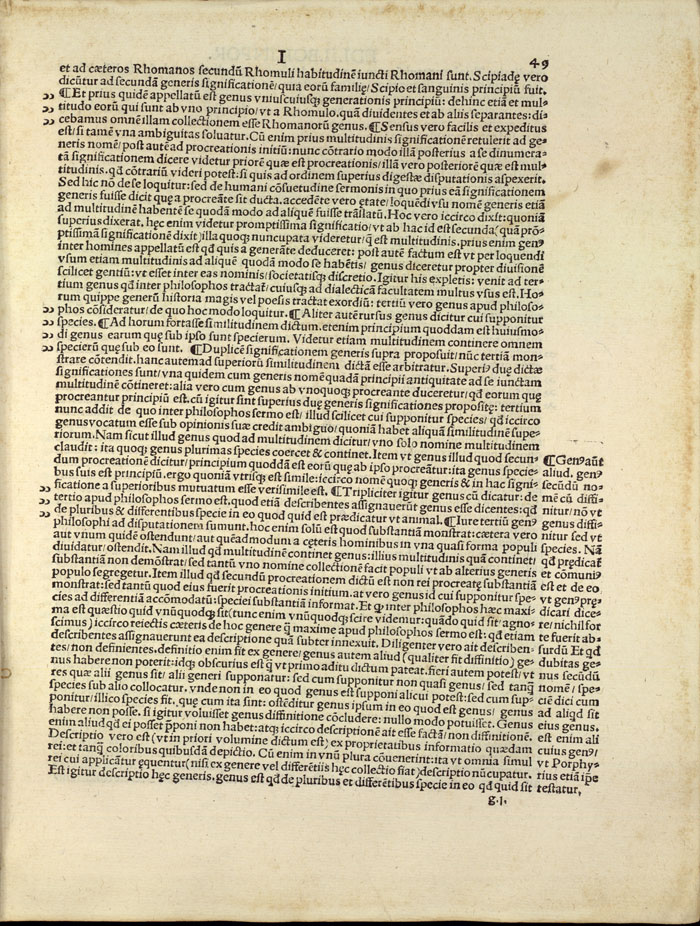 I
49
et ad cæteros Rhomanos secundū Rhomuli habitudinē iuncti Rhomani sunt. Scipiadę vero
dicūtur ad secundā generis significationē/ quia eorū familię/ Scipio et sanguinis principiū fuit.
¶Et prius quidē appellatū est genus vniuscuiusq; generationis principiū: dehinc etiā et mul-
titudo eorū qui sunt ab vno principio/ vt a Rhomulo. quā diuidentes et ab aliis separantes: di-
cebamus omnē illam collectionem esse Rhomanorū genus. ¶Sensus vero facilis et expeditus
est/ si tamē vna ambiguitas soluatur. Cū enim prius multitudinis significationē retulerit ad ge-
neris nomē/ post autē ad procreationis initiū: nunc cōtrario modo illā posterius a se dinumera-
tā significationem dicere videtur priorē quæ est procreationis/ illā vero posteriorē quæ est mul-
titudinis. qđ cōtrariū videri potest: si quis ad ordinem superius digestæ disputationis aspexerit.
Sed hic nō de se loquitur: sed de humani cōsuetudine sermonis in quo prius eā significationem
generis fuisse dicit quę a procreāte sit ducta. accedēte vero ętate/ loquēdi vsu nomē generis etiā
ad multitudinē habentē se quodā modo ad aliquē fuisse trāslatū. Hoc vero iccirco dixit: quoniā
superius dixerat. hęc enim videtur promptissima significatio/ vt ab hac id est secunda (quā prō-
ptissimā significationē dixit) illa quoq; nuncupata videretur/ q̄ est multitudinis. prius enim genꝰ
inter homines appellatū est qđ quis a generāte deduceret: post autē factum est vt per loquendi
vsum etiam multitudinis ad aliquē quodā modo se habētis/ genus diceretur propter diuisionē
scilicet gentiū: vt esset inter eas nominis/ societatisq; discretio. Igitur his expletis: venit ad ter-
tium genus qđ inter philosophos tractāt/ cuiusq; ad dialecticā facultatem multus vsus est. Ho-
rum quippe generū historia magis vel poesis tractat exordiū: tertiū vero genus apud philoso-
phos cōsideratur/ de quo hoc modo loquitur. ¶Aliter autē rursus genus dicitur cui supponitur
species. ¶Ad horum fortasse similitudinem dictum. etenim principium quoddam est huiusmo-
di genus earum quę sub ipso sunt specierum. Videtur etiam multitudinem continere omnem
specierū quę sub eo sunt. ¶Duplicē significationem generis supra proposuit/ nūc tertiā mon-
strare cōtendit. hanc autem ad superiorū similitudinem dictā esse arbitratur. Superiꝰ duę dictæ
significationes sunt/ vna quidem cum generis nomē quadā principii antiquitate ad se iunctam
multitudinē cōtineret: alia vero cum genus ab vnoquoq; procreante duceretur/ qđ eorum quę
procreantur principiū est. cū igitur sint superius duę generis significationes propositę: tertium
nunc addit de quo inter philosophos sermo est/ illud scilicet cui supponitur species/ qđ iccirco
genus vocatum esse sub opinionis suæ credit ambiguo/ quoniā habet aliquā similitudinē supe-
riorum. Nam sicut illud genus quod ad multitudinem dicitur/ vno solo nomine multitudinem
claudit: ita quoq; genus plurimas species coercet & continet. Item vt genus illud quod secun-
dum procreationem dicitur/ principium quoddā est eorū quę ab ipso procreātur: ita genus specie-
bus suis est principiū. ergo quoniā vtrisq; est simile: iccirco nomē quoq; generis & in hac signi-
ficatione a superioribus mutuatum esse verisimile est. ¶Tripliciter igitur genus cū dicatur: de
tertio apud philosophos sermo est. quod etiā describentes assignauerūt genus esse dicentes: qđ
de pluribus & differentibus specie in eo quod quid est prædicatur vt animal. ¶Iure tertiū genꝰ
philosophi ad disputationem sumunt. hoc enim solū est quod substantiā monstrat: cætera vero
aut vnum quidē ostendunt/ aut quēadmodum a cęteris hominibus in vna quasi forma populi
diuidatur/ ostendit. Nam illud qđ multitudinē continet genus: illius multitudinis quā continet/
substantiā non demōstrat/ sed tantū vno nomine collectionē facit populi vt ab alterius generis
populo segregetur. Item illud qđ secundū procreationem dictū est non rei procreatę substantiā
monstrat: sed tantū quod eius fuerit procreationis initium. at vero genus id cui supponitur spe-
cies ad differentiā accōmodatū: speciei substantiā informat. Et qꝫ inter philosophos hæc maxi-
ma est quæstio quid vnūquodq; sit (tunc enim vnūquodq; scire videmur: quādo quid sit/ agno-
scimus) iccirco reiectis cæteris de hoc genere q̄ maxime apud philosophos sermo est: qđ etiam
describentes assignauerunt ea descriptione quā subter innexuit. Diligenter vero ait describen-
tes/ non definientes. definitio enim fit ex genere/ genus autem aliud (qualiter fit diffinitio) ge-
nus habere non poterit: idq; obscurius est q̄ vt primo aditu dictum pateat. fieri autem potest/ vt
res quæ alii genus sit/ alii generi supponatur: sed cum supponitur non quasi genus/ sed tanq̄
species sub alio collocatur. vnde non in eo quod genus est supponi alicui potest: sed cum sup-
ponitur/ illico species fit. que cum ita sint: ostēditur genus ipsum in eo quod est genus/ genus
habere non posse. si igitur voluisset genus diffinitione cōcludere: nullo modo potuisset. Genus
enim aliud qđ ei posset p̄poni non habet: atq; iccirco descriptionē ait esse factā/ non diffinitionē.
Descriptio vero est (vt in priori volumine dictum est) ex proprietatibus informatio quædam
rei: et tanq̄ coloribus quibusdā depictio. Cū enim in vnū plura cōuenerint: ita vt omnia simul
rei cui applicātur ęquentur (nisi ex genere vel differētiis hęc collectio fiat) descriptio nūcupatur.
Est igitur descriptio hęc generis. genus est qđ de pluribus et differētibus specie in eo qđ quid sit
¶Genꝰ aūt
aliud. genꝰ
secūdū no-
mē cū diffi-
nitur/ nō vt
genus diffi-
nitur sed vt
species. Nā
qđ prędicat
et cōmuniꝰ
est et de eo
vt genꝰ prę-
dicari dice-
re/ nichil for
te fuerit ab-
surdū Et qđ
dubitas ge-
nus secūdū
nomē/ spe-
ciē dici cum
ad aliqđ sit
eius genus.
est enim ali
cuius genꝰ/
vt Porphy-
rius etiā ip̄e
testatur.
g.i.